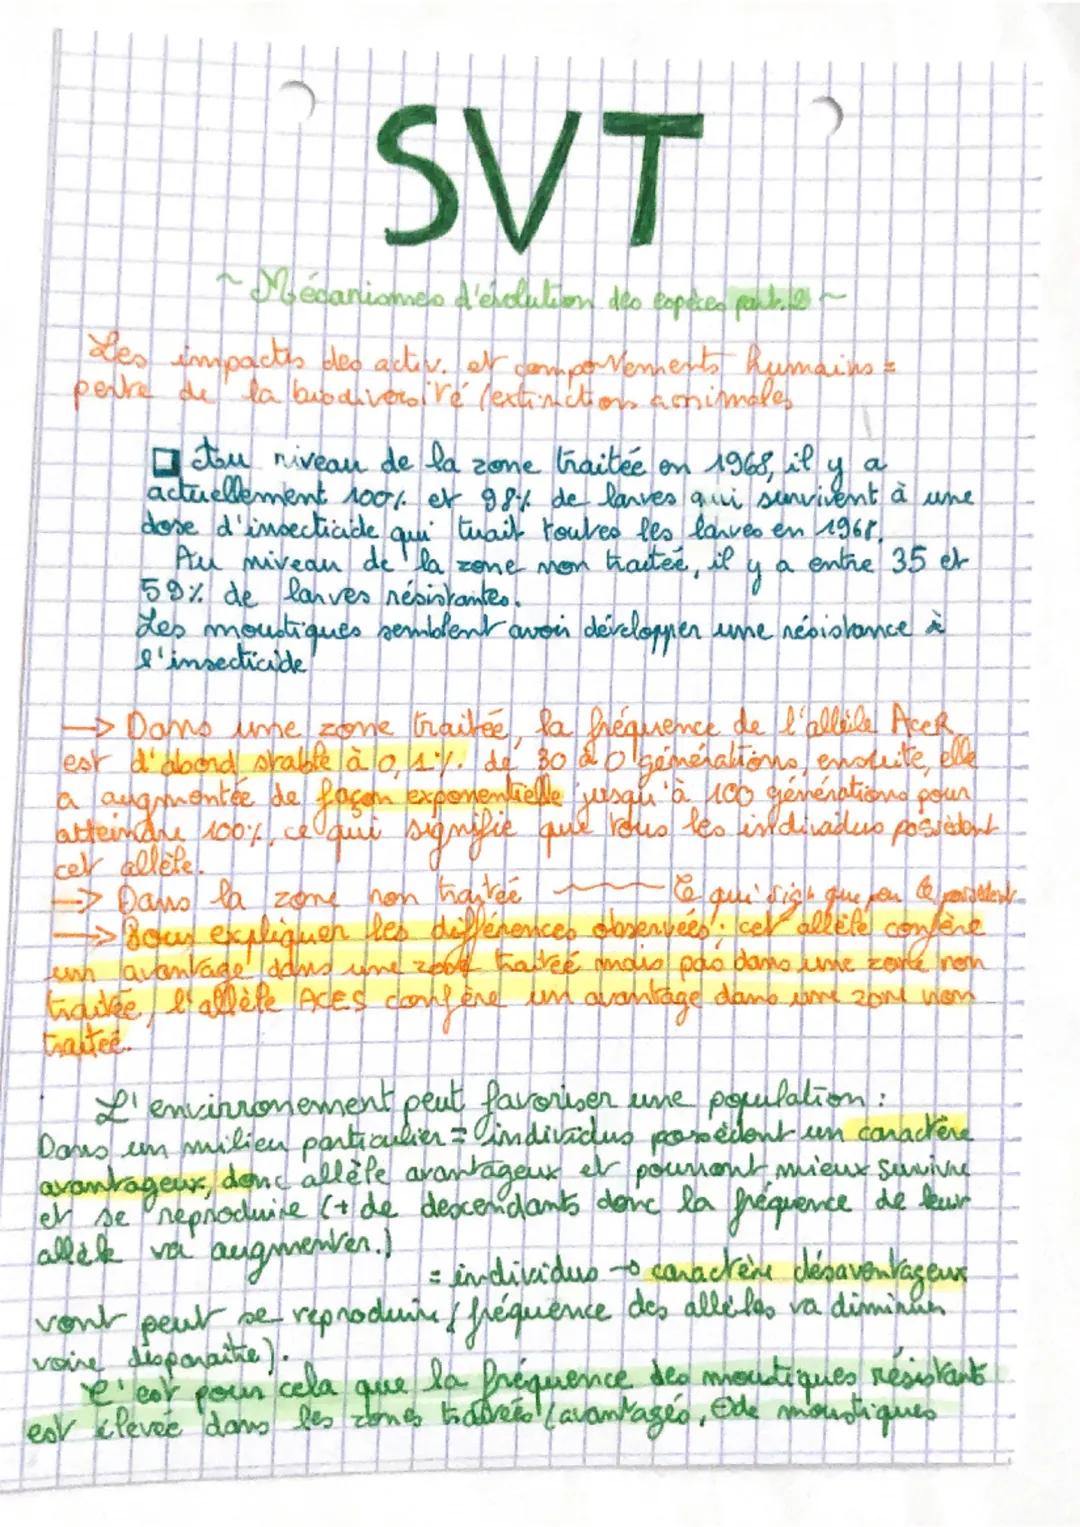 SVT
~ Mécanismes d'évolution des espèces part. 2 ~
Les impacts des activ. et comportements humains =
perte de la biodiversité (extinctions animales
Au niveau de la zone traitée en 1968, il y a
actuellement 100% et 98% de larves qui survivent à une
dose d'insecticide qui tuait toutes les larves en 1968.
Au niveau de la zone non traitée, il y a entre 35 et
59% de larves résistantes.
Les moustiques semblent avoir développer une résistance à
l'insecticide
→ Dans une zone traitée, la fréquence de l'allèle AceR
est d'abord stable à 0,1%. de 30 à 0 générations, ensuite, elle
a augmentée de façon exponentielle jusqu'à 100 générations pour
atteindre 100%, ce qui signifie que tous les individus possèdent
cet allèle.
→ Dans la zone non traitée Ce qui sign que peu le possèdent
→ Pour expliquer les différences observées : cet allèle confère
un avantage dans une zone traitée mais pas dans une zone non
traitée, l'allèle ACES confère un avantage dans une zone non
traitée.
L'environnement peut favoriser une population :
Dans un milieu particulier = individus possèdent un caractère
avantageux, donc allèle avantageux et pourront mieux survivre
et se reproduire (+ de descendants donc la fréquence de leur
allèle va augmenter.)
= individus → caractère désavantageux
vont peut se reproduire (fréquence des allèles va diminuer
voire disparaitre).
C'est pour cela que la fréquence des moustiques résistants
est élevée dans les zones traitées (avantagés, ⊕ de moustiques